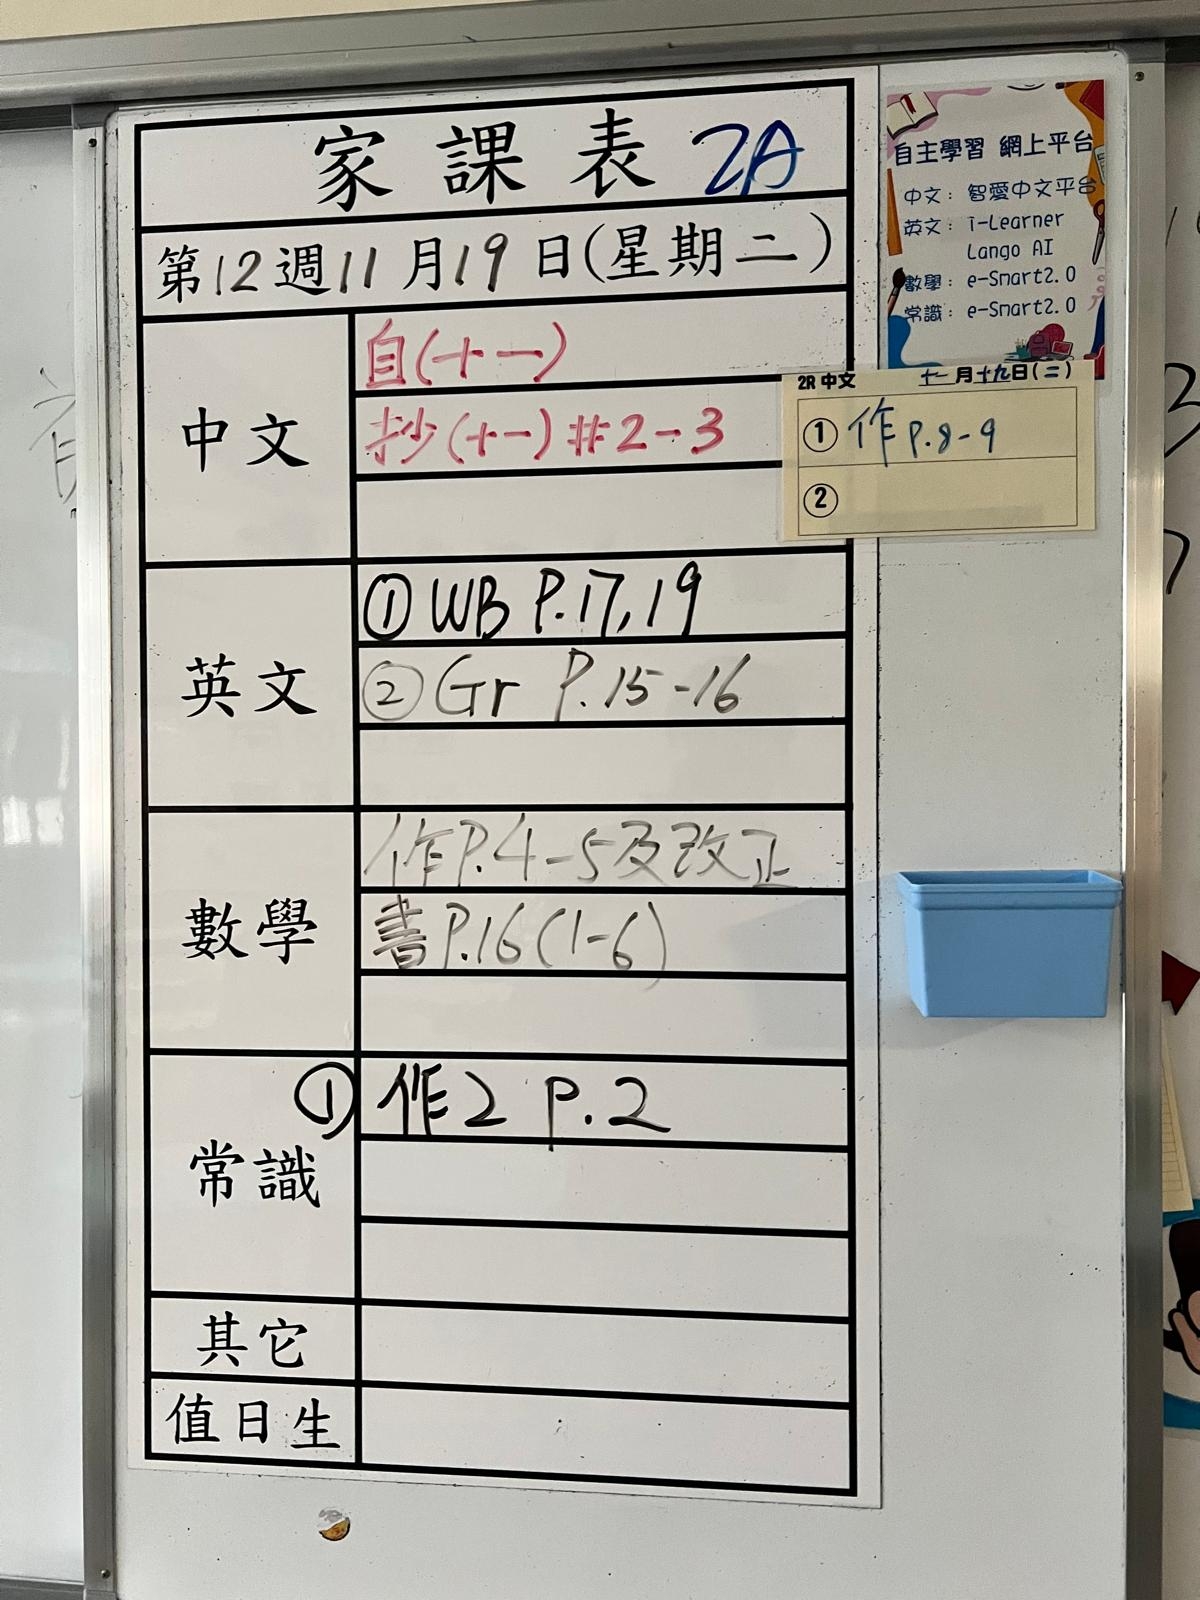 家課表 2A
第12週11月19日(星期二)
中文
自(十一)
抄(十一)#2-3
英文
① WB P.17,19
② Gr P.15-16
數學
作P.4-5及改正
書P.16(1-6)
常識
① 作2 P.2
其它
值日生
自主學習 網上平台
中文: 智愛中文平台
英文: i-Learner
Lango AI
數學: e-Smart2.0
常識: e-Smart2.0
2R 中文 十一月十九日(二)
① 作 P.8-9
②